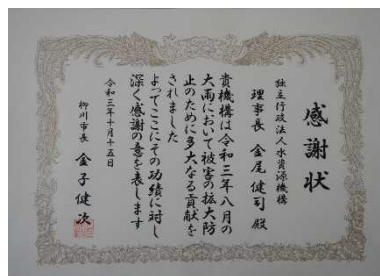 感謝状
独立行政法人水資源機構
理事長 金尾健司 殿
貴機構は令和三年八月の
大雨において被害の拡大防
止のために多大なる貢献を
されました
よってここにその功績に対し
深く感謝の意を表します
令和三年十月十五日
柳川市長 金子健次